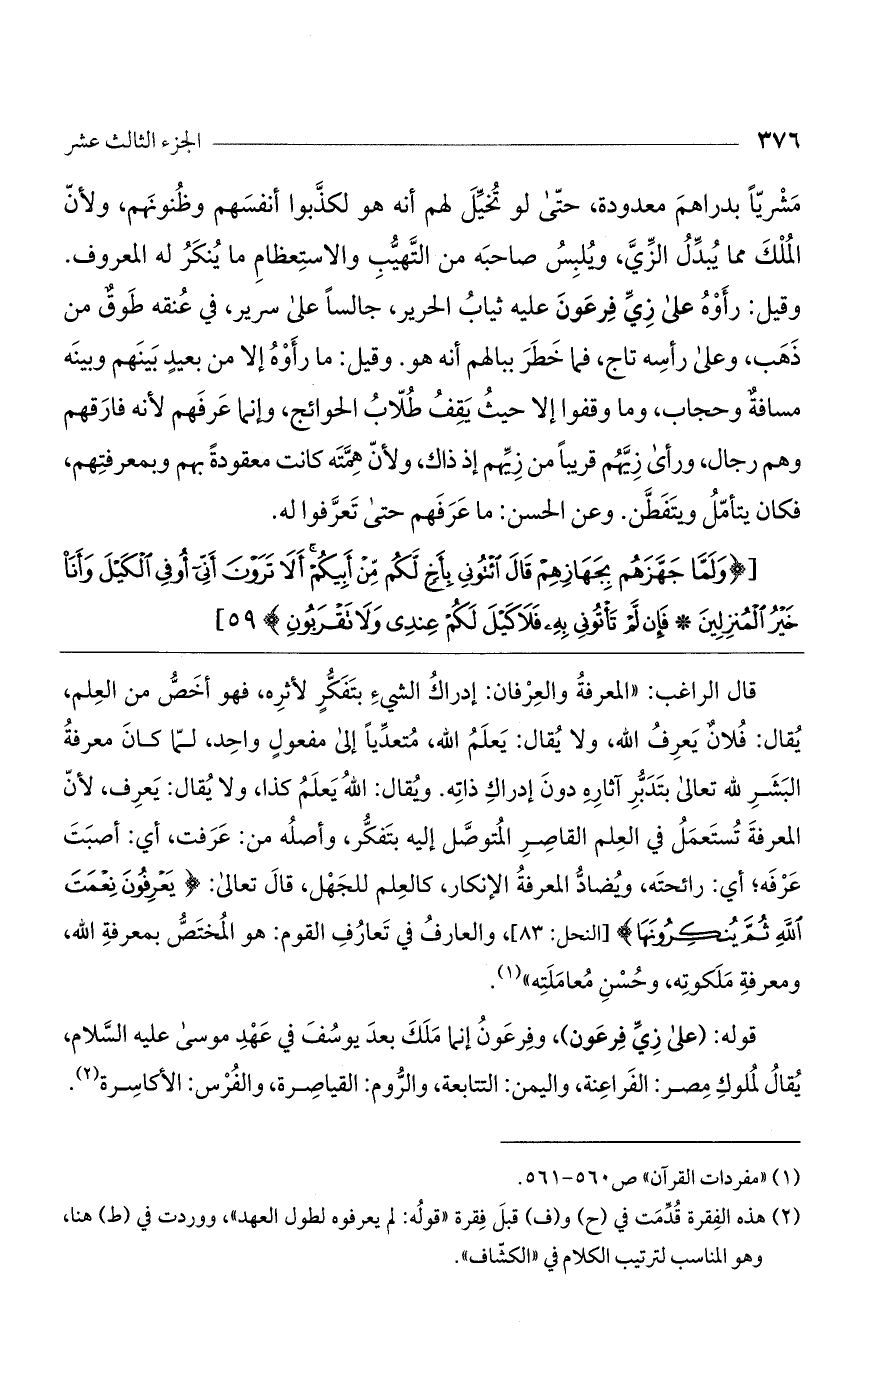 ٣٧٦ الجزء الثالث عشر
مَشْريّاً بدراهمَ معدودة، حتّىٰ لو تُخيِّلَ لهم أنه هو لكذَّبوا أنفسَهم وظُنونَهم، ولأنّ
المُلْكَ مما يُبدِّلُ الزِّيَّ، ويُلبِسُ صاحبَه من التَّهيُّبِ والاستِعظامِ ما يُنكَرُ له المعروف.
وقيل: رأَوْهُ علىٰ زِيِّ فِرعَونَ عليه ثيابُ الحرير، جالساً علىٰ سرير، في عُنقه طَوقٌ من
ذَهَب، وعلىٰ رأسِه تاج، فما خَطَرَ ببالهم أنه هو. وقيل: ما رأَوْهُ إلا من بعيدٍ بَينَهم وبينَه
مسافةٌ وحجاب، وما وقفوا إلا حيثُ يَقِفُ طُلّابُ الحوائج، وإنما عَرفَهم لأنه فارَقهم
وهم رجال، ورأىٰ زِيَّهُم قريباً من زِيِّهم إذ ذاك، ولأنّ هِمَّتَه كانت معقودةً بهم وبمعرفتِهم،
فكان يتأمّلُ ويتَفَطَّن. وعن الحسن: ما عَرَفَهم حتىٰ تَعرَّفوا له.
[﴿وَلَمَّا جَهَّزَهُم بِجَهَازِهِمْ قَالَ ٱئْتُونِي بِأَخٍ لَّكُم مِّنْ أَبِيكُمْ ۚ أَلَا تَرَوْنَ أَنِّىٓ أُوفِي ٱلْكَيْلَ وَأَنَا۠
خَيْرُ ٱلْمُنزِلِينَ * فَإِن لَّمْ تَأْتُونِي بِهِۦ فَلَا كَيْلَ لَكُمْ عِندِى وَلَا نَقْرَبُونِ﴾ ٥٩]
قال الراغب: «المعرفةُ والعِرْفان: إدراكُ الشيءِ بتَفَكُّرٍ لأثرِه، فهو أخَصُّ من العِلم،
يُقال: فُلانٌ يَعرِفُ الله، ولا يُقال: يَعلَمُ الله، مُتعدِّياً إلىٰ مفعولٍ واحِد، لـمّا كـانَ معرفةُ
البَشَـرِ لله تعالىٰ بتَدَبُّرِ آثارِهِ دونَ إدراكِ ذاتِه. ويُقال: اللهُ يَعلَمُ كذا، ولا يُقال: يَعرِف، لأنّ
المعرفةَ تُستَعمَلُ في العِلم القاصِـرِ المُتوصَّل إليه بتَفكُّر، وأصلُه من: عَرَفت، أي: أصبَتَ
عَرْفَه؛ أي: رائحتَه، ويُضادُّ المعرفةُ الإنكار، كالعِلم للجَهْل، قالَ تعالىٰ: ﴿يَعْرِفُونَ نِعْمَتَ
ٱللَّهِ ثُمَّ يُنكِرُونَهَا﴾ [النحل: ٨٣]، والعارفُ في تَعارُفِ القوم: هو المُختَصُّ بمعرفةِ الله،
ومعرفةِ مَلَكوتِه، وحُسْنِ مُعامَلَتِه»(١).
قوله: (علىٰ زِيِّ فِرعَون)، وفِرعَونُ إنما مَلَكَ بعدَ يوسُفَ في عَهْدِ موسىٰ عليه السَّلام،
يُقالُ لمُلوكِ مِصـر: الفَراعِنة، واليمن: التتابعة، والرُّوم: القياصِـرة، والفُرْس: الأكاسِـرة(٢).
(١) «مفردات القرآن» ص٥٦٠-٥٦١.
(٢) هذه الفِقرة قُدِّمَت في (ح) و(ف) قبلَ فِقرة «قولُه: لم يعرفوه لطول العهد»، ووردت في (ط) هنا،
وهو المناسب لترتيب الكلام في «الكشّاف».